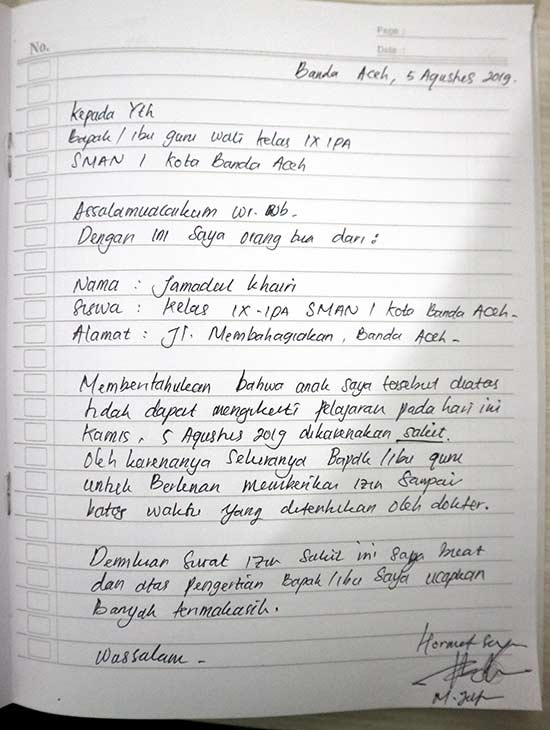 No.
Page :
Date :
Banda Aceh, 5 Agustus 2019.
Kepada Yth
Bapak / ibu guru wali kelas IX IPA
SMAN 1 Kota Banda Aceh
Assalamualaikum wr. wb.
Dengan ini saya orang tua dari :
Nama : Jamadul Khairi
Siswa : Kelas IX-IPA SMAN 1 Koto Banda Aceh-
Alamat : Jl. Membahagiakan, Banda Aceh-
Memberitahukan bahwa anak saya tersebut diatas
tidak dapat mengikuti pelajaran pada hari ini
Kamis, 5 Agustus 2019 dikarenakan sakit.
Oleh karenanya sekiranya Bapak / ibu guru
untuk Berkenan memberikan izin sampai
batas waktu yang ditentukan oleh dokter.
Demikian surat izin sakit ini saya buat
dan atas pengertian Bapak / ibu saya ucapkan
Banyak terimakasih.
Wassalam-
Hormat saya